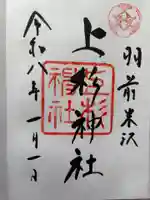 羽前米沢
上杉神社
上杉神社
令和八年一月一日